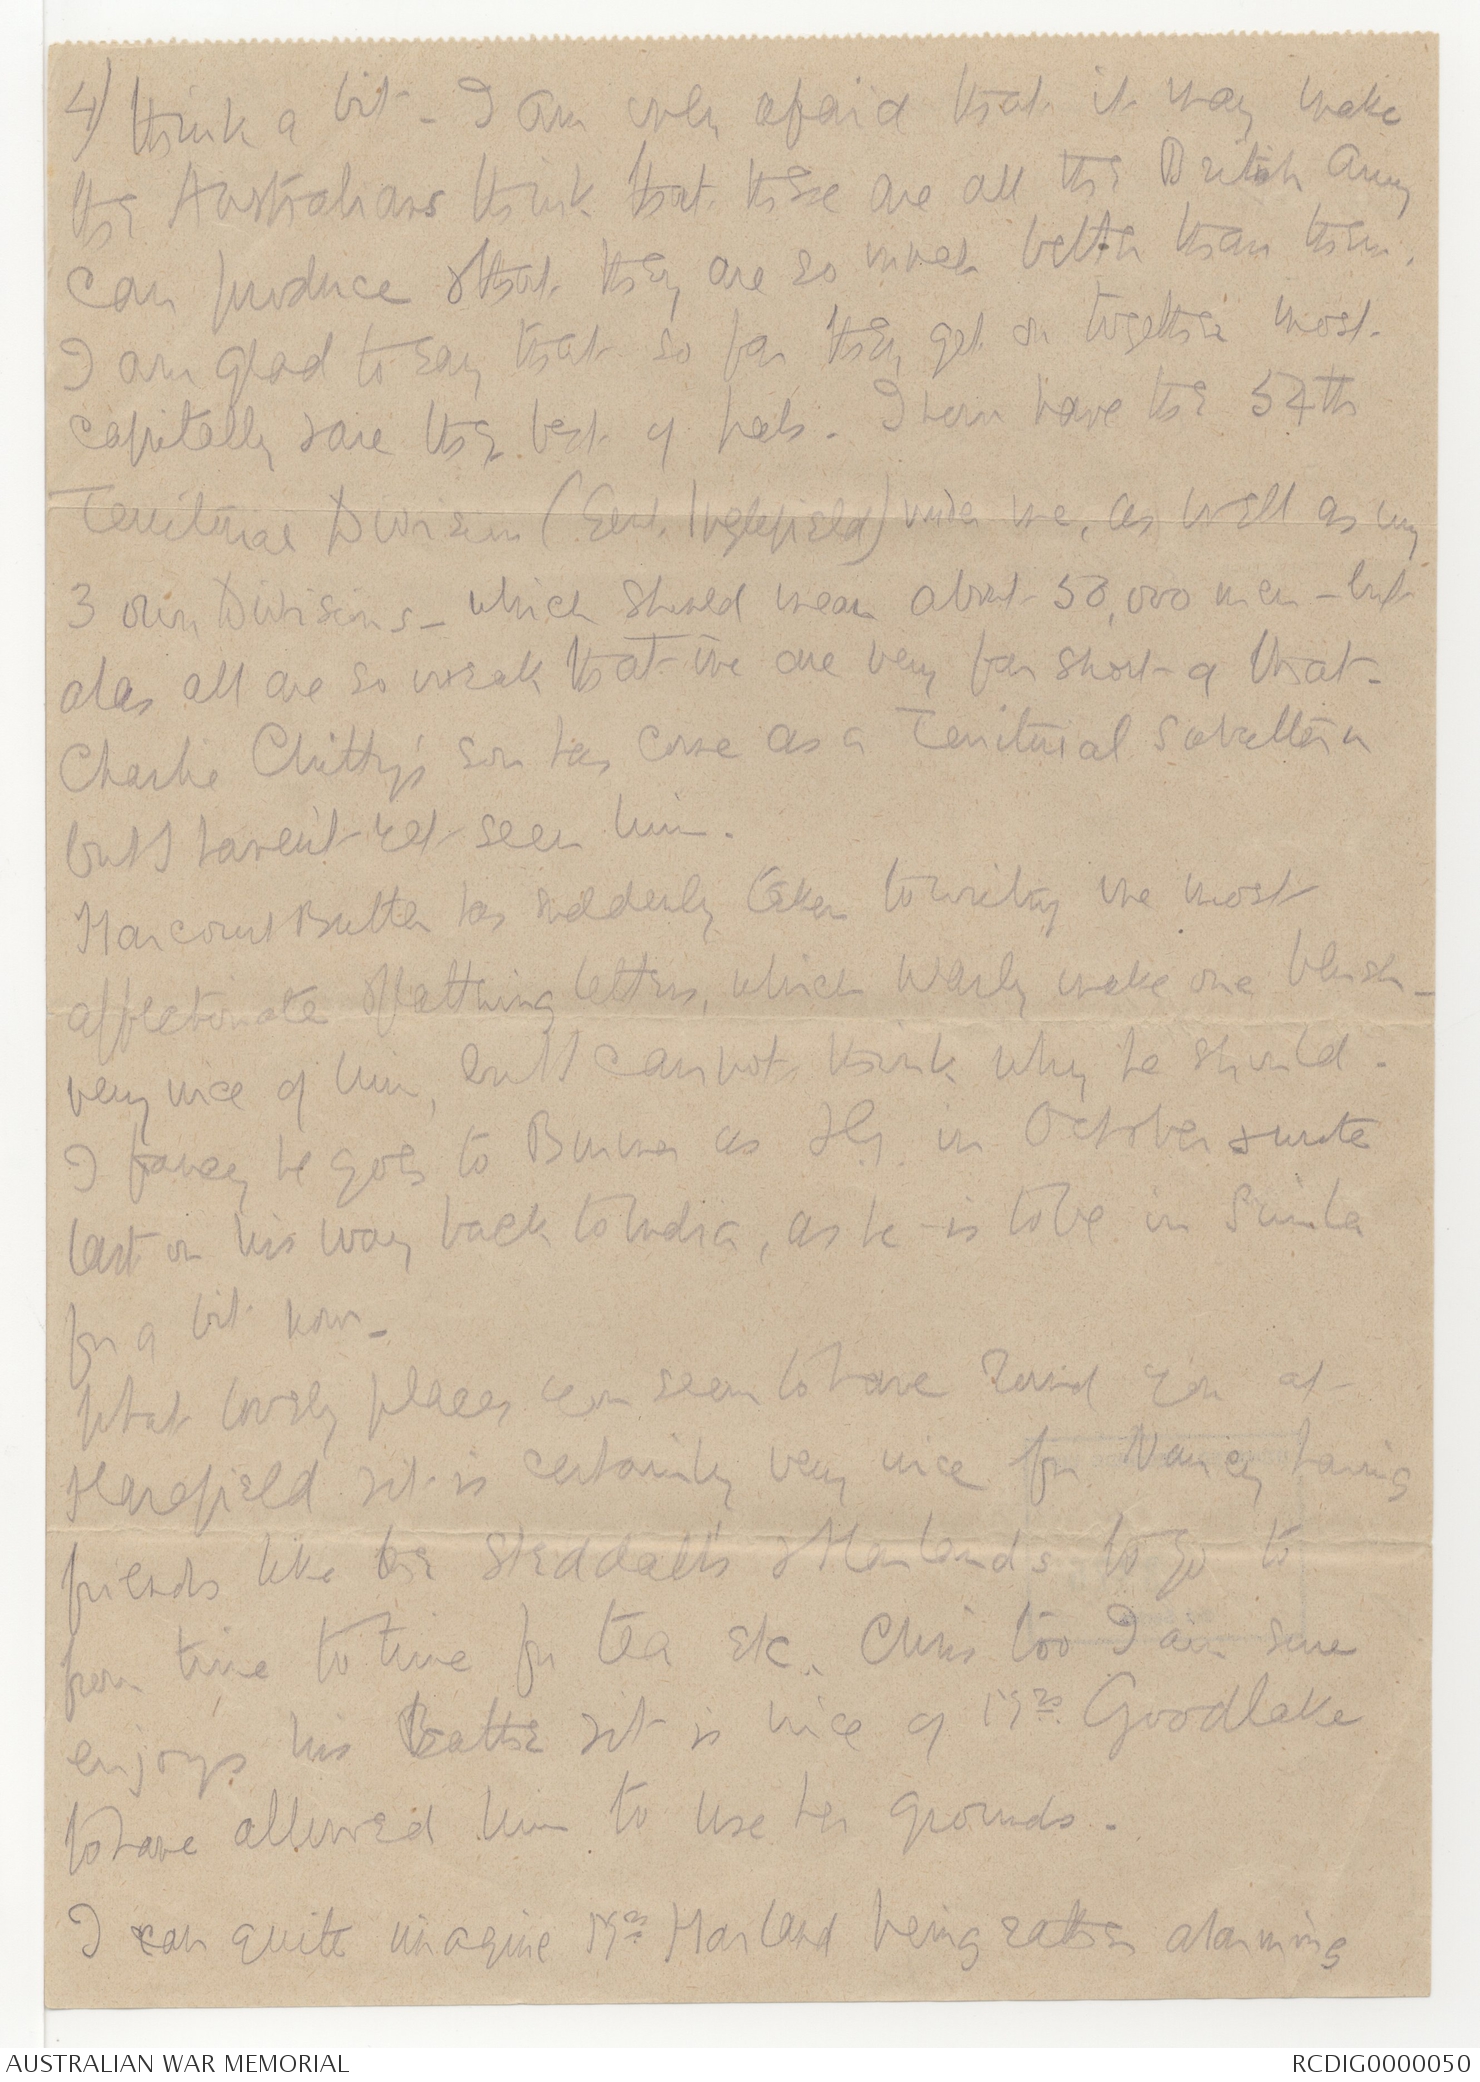 4) think a bit - I am only afraid that it may make
the Australians think that these are all the British Army
can produce & that they are so much better than them.
I am glad to say that so far they get on together most
capitally & are the best of pals. I now have the 54th
Territorial Division (Genl. Inglefield) under me, as well as my
3 own Divisions - which should mean about 50,000 men - but
alas all are so weak that we are very far short of that -
Charlie Chitty's son has come as a Territorial Subaltern
but I haven't yet seen him.
Harcourt Butler has suddenly taken to writing me most
affectionate & flattering letters, which nearly make one blush -
very nice of him, but I cannot think why he should.
I fancy he goes to Burma as L.G. in October & wrote
last on his way back to India, as he is to be in Simla
for a bit now -
What lovely places you seem to have round you at
Harefield & it is certainly very nice for Nancy having
friends like the & Harlands to go to
from time to time for tea etc. Chris too I am sure
enjoys his & it is nice of Mrs. Goodlake
to have allowed him to use her grounds.
I can quite imagine Mrs Harland being rather alarming
AUSTRALIAN WAR MEMORIAL
RCDIG0000050